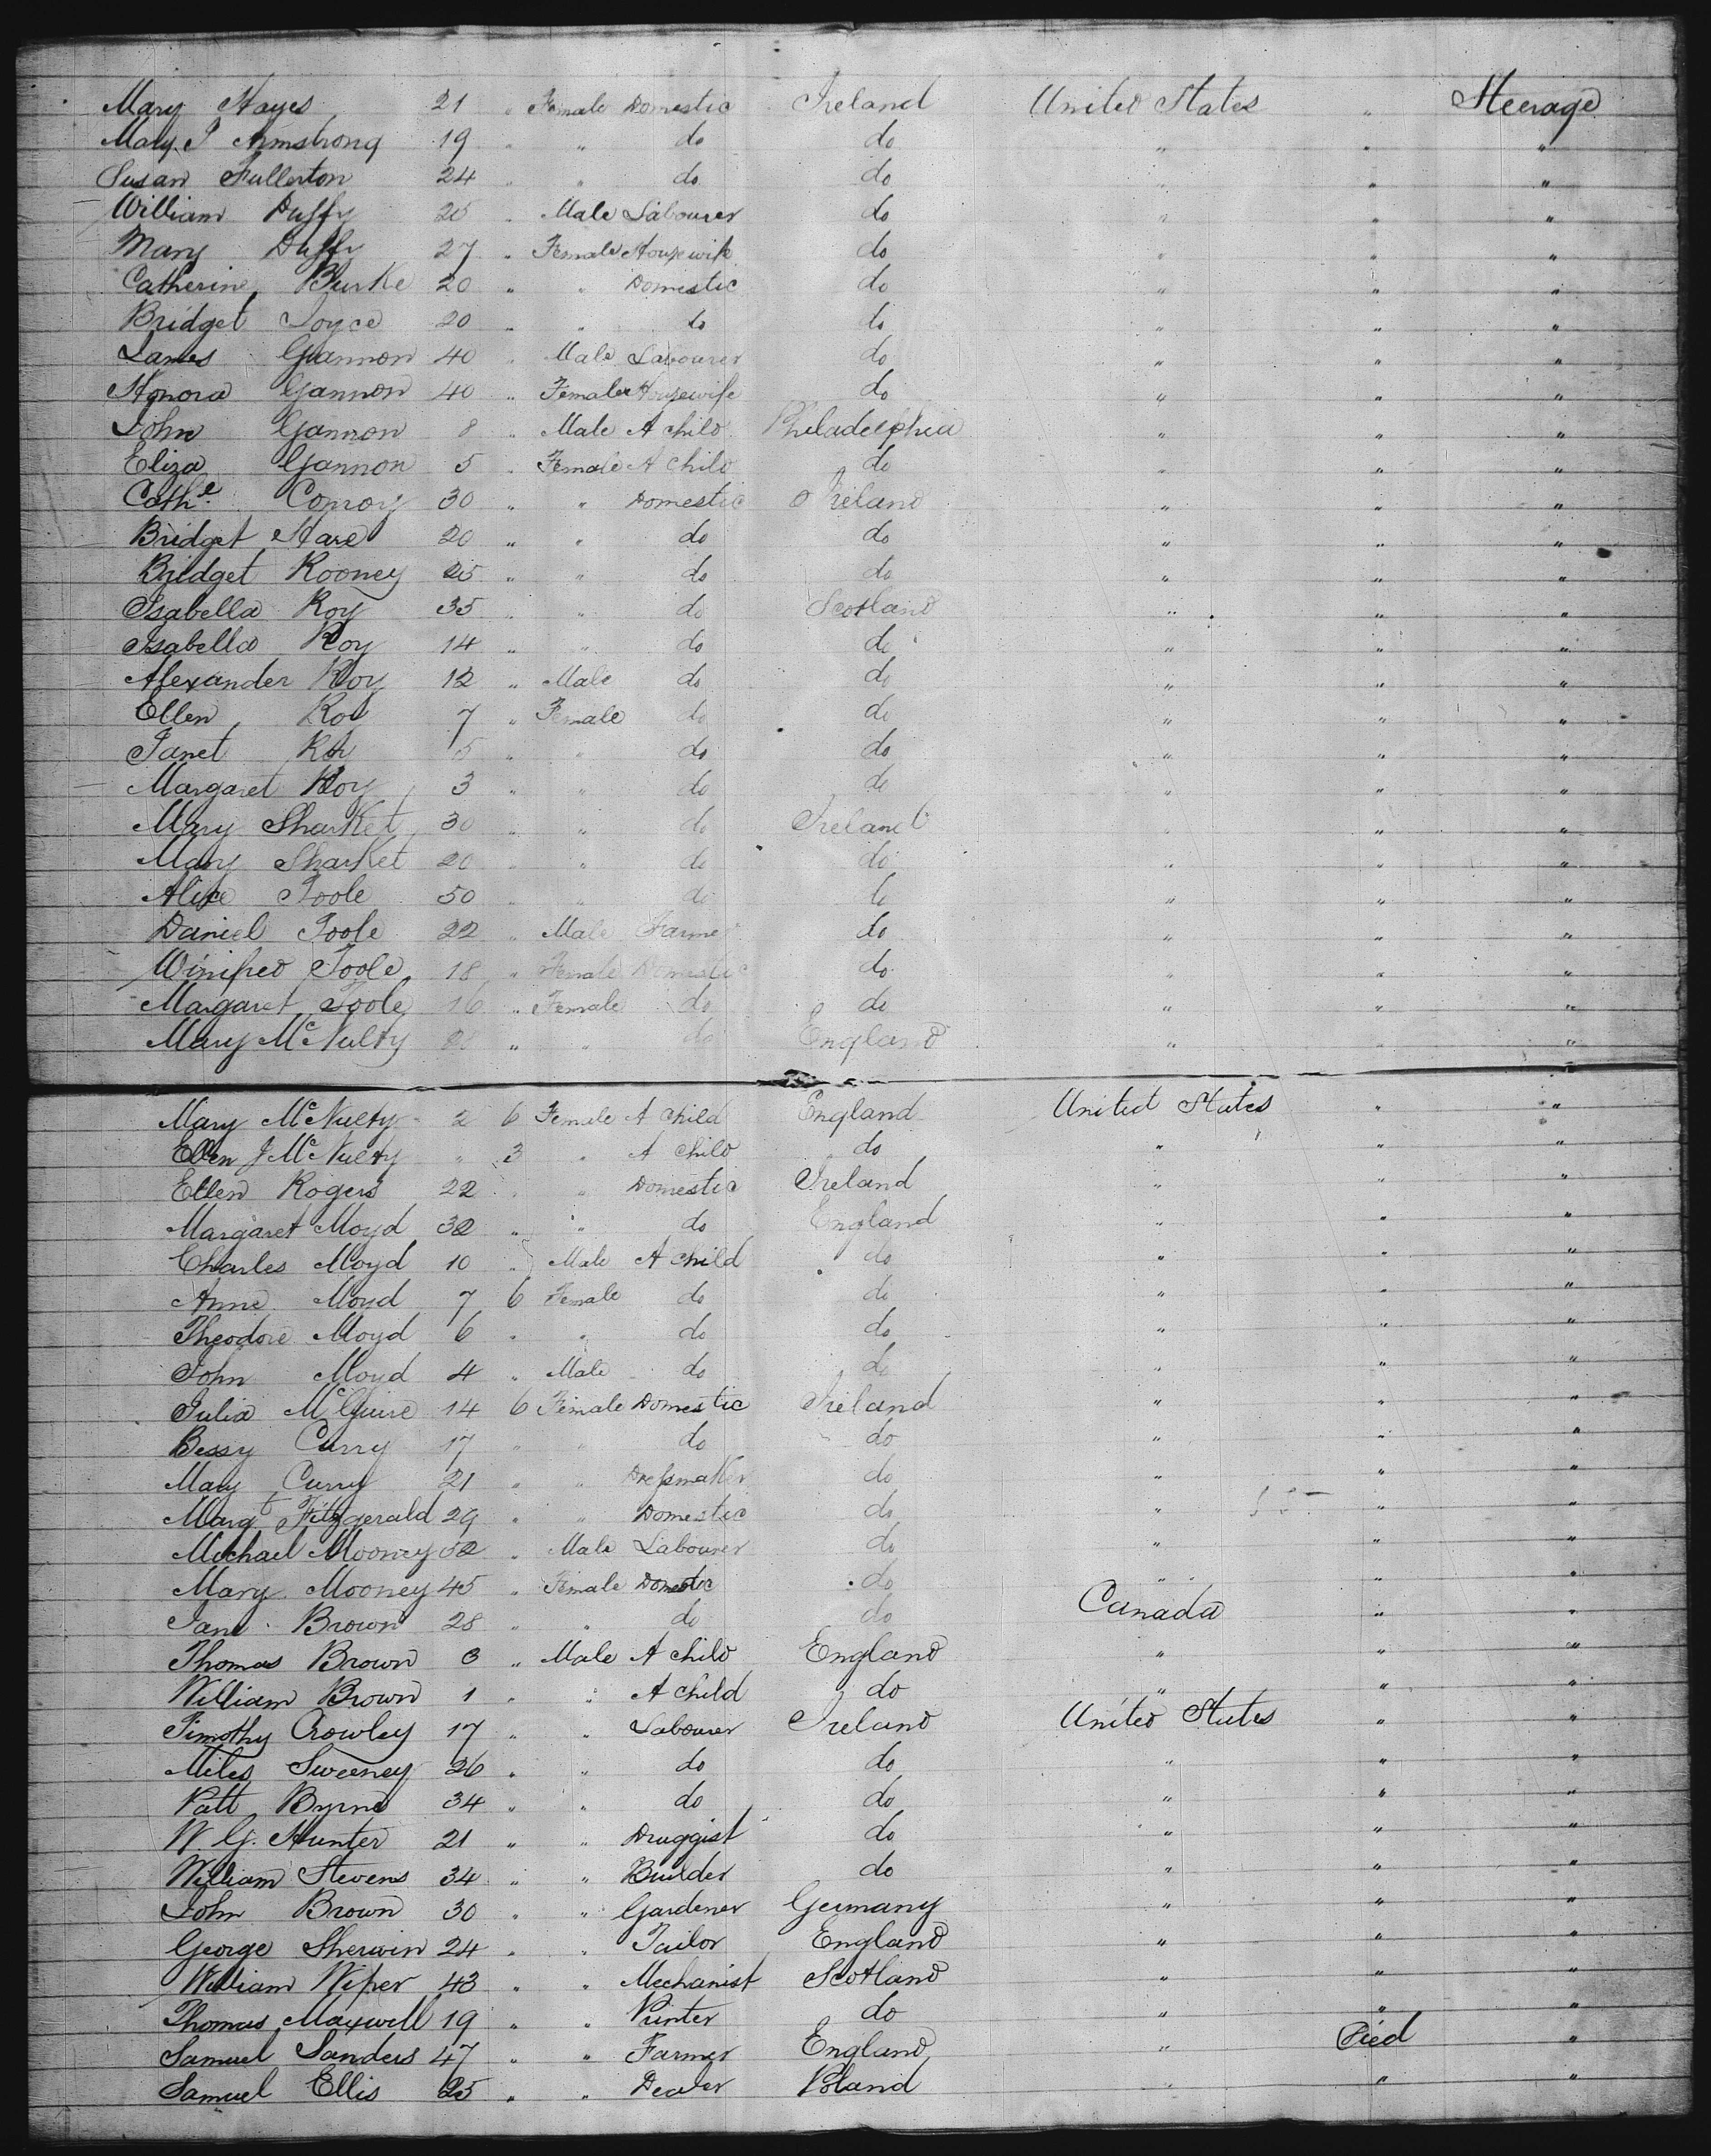 Mary Hayes 21 " Female Domestic Ireland United States " Steerage
Mary J Armstrong 19 " " do do " " "
Susan Fullerton 24 " " do do " " "
William Duffy 25 " Male Labourer do " " "
Mary Duffy 27 " Female Housewife do " " "
Catherine Burke 20 " " Domestic do " " "
Bridget Joyce 20 " " do do " " "
James Gannon 40 " Male Labourer do " " "
Honora Gannon 40 " Female Housewife do " " "
John Gannon 8 " Male A child Philadelphia " " "
Eliza Gannon 5 " Female A child do " " "
Cathe Conroy 30 " " Domestic Ireland " " "
Bridget Hare 20 " " do do " " "
Bridget Rooney 25 " " do do " " "
Isabella Roy 35 " " do Scotland " " "
Isabella Roy 14 " " do do " " "
Alexander Roy 12 " Male do do " " "
Ellen Roy 7 " Female do do " " "
Janet Roy 5 " " do do " " "
Margaret Roy 3 " " do do " " "
Mary Sharket 30 " " do Ireland " " "
Mary Sharket 20 " " do do " " "
Alice Toole 50 " " do do " " "
Daniel Toole 22 " Male Farmer do " " "
Winifred Toole 18 " Female Domestic do " " "
Margaret Toole 16 " Female do do " " "
Mary McNulty " " do England " " "
Mary McNulty 2 6 Female A child England United States " "
Ellen J McNulty " 3 " A child do " " "
Ellen Rogers 22 " " Domestic Ireland " " "
Margaret Moyd 32 " " do England " " "
Charles Moyd 10 " Male A child do " " "
Anne Moyd 7 6 Female do do " " "
Theodore Moyd 6 " " do do " " "
John Moyd 4 " Male do do " " "
Julia McGuire 14 6 Female Domestic Ireland " " "
Bessy Curry 17 " " do do " " "
Mary Curry 21 " " Dressmaker do " " "
Margt Fitzgerald 29 " " Domestic do " " "
Michael Mooney 52 " Male Labourer do " " "
Mary Mooney 45 " Female Domestic do " " "
Jane Brown 28 " " do do Canada " "
Thomas Brown 3 " Male A child England " " "
William Brown 1 " " A child do " " "
Timothy Crowley 17 " " Labourer Ireland United States " "
Miles Sweeney 26 " " do do " " "
Patt Byrne 34 " " do do " " "
W. G. Hunter 21 " " Druggist do " " "
William Stevens 34 " " Builder do " " "
John Brown 30 " " Gardener Germany " " "
George Sherwin 24 " " Tailor England " " "
William Wiper 43 " " Mechanist Scotland " " "
Thomas Maxwell 19 " " Printer do " " "
Samuel Sanders 47 " " Farmer England " Died "
Samuel Ellis 25 " " Dealer Poland " " "